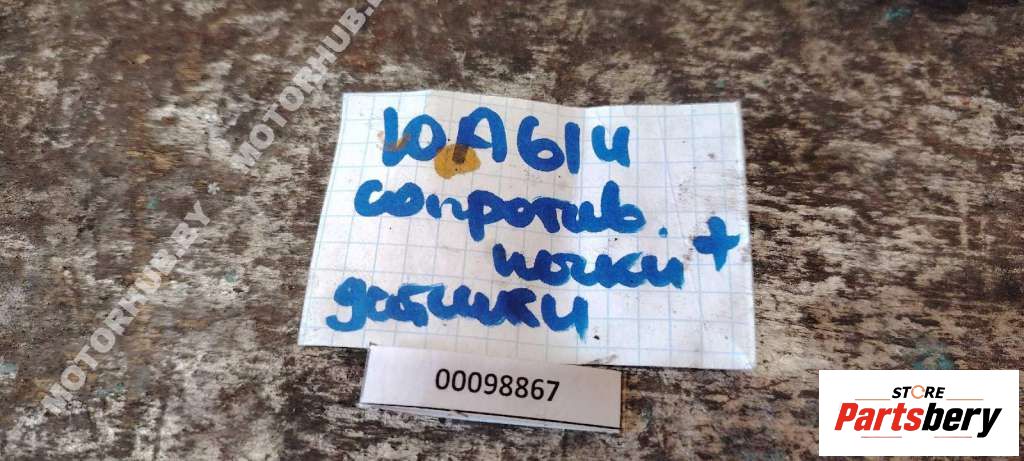 MOTORHUB.BY
MOTORHUB.BY
сопротив.
почки +
датчики
00098867
STORE
Partsbery